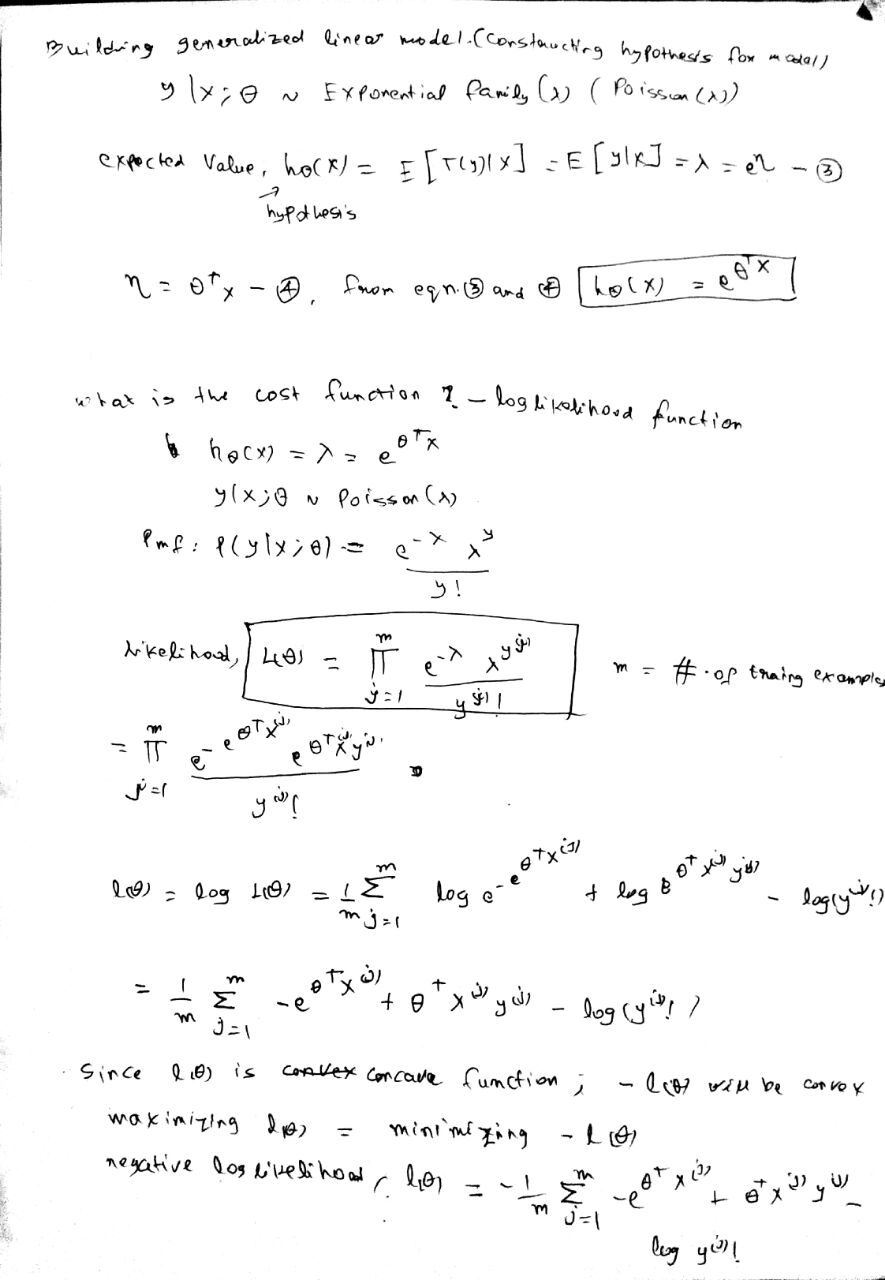 Building generalized linear model. (Constructing hypothesis for model)
y|x;θ ~ Exponential family (λ) (Poisson(λ))
expected value, hθ(x) = E[T(y)|x] = E[y|x] = λ = e^η - ③
hypothesis
η = θ^T x - ④, from eqn. ③ and ④ hθ(x) = e^{θ^T x}
what is the cost function ? - log likelihood function
hθ(x) = λ = e^{θ^T x}
y|x;θ ~ Poisson(λ)
Pmf: P(y|x;θ) = e^{-λ} λ^y / y!
likelihood, L(θ) = ∏_{j=1}^{m} e^{-λ} λ^{y^{(j)}} / y^{(j)}! m = # of traing examples
= ∏_{j=1}^{m} e^{-e^{θ^T x^{(j)}}} e^{θ^T x^{(j)} y^{(j)}} / y^{(j)}!
l(θ) = log L(θ) = 1/m ∑_{j=1}^{m} log e^{-e^{θ^T x^{(j)}}} + log e^{θ^T x^{(j)} y^{(j)}} - log(y^{(j)}!)
= 1/m ∑_{j=1}^{m} -e^{θ^T x^{(j)}} + θ^T x^{(j)} y^{(j)} - log(y^{(j)}!)
Since l(θ) is convex concave function ; - l(θ) will be convex
maximizing l(θ) = minimizing - l(θ)
negative log likelihood, l(θ) = - 1/m ∑_{j=1}^{m} -e^{θ^T x^{(j)}} + θ^T x^{(j)} y^{(j)} -
log y^{(j)}!